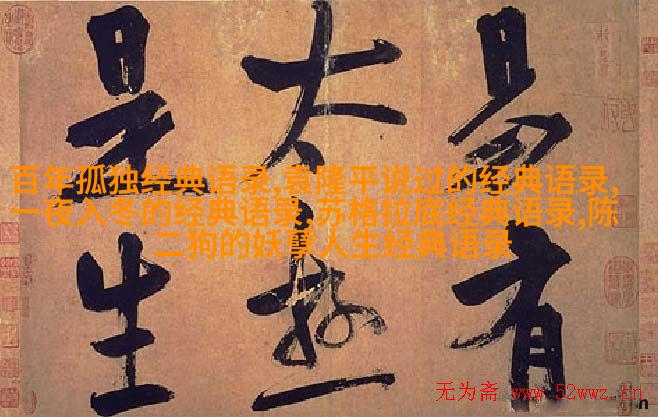 易有
太極
是生
百年孤独经典语录,袁隆平说过的经典语录,
一夜入冬的经典语录,苏格拉底经典语录,陈
二狗的妖孽人生经典语录
无为斋 www.52wwz.cn